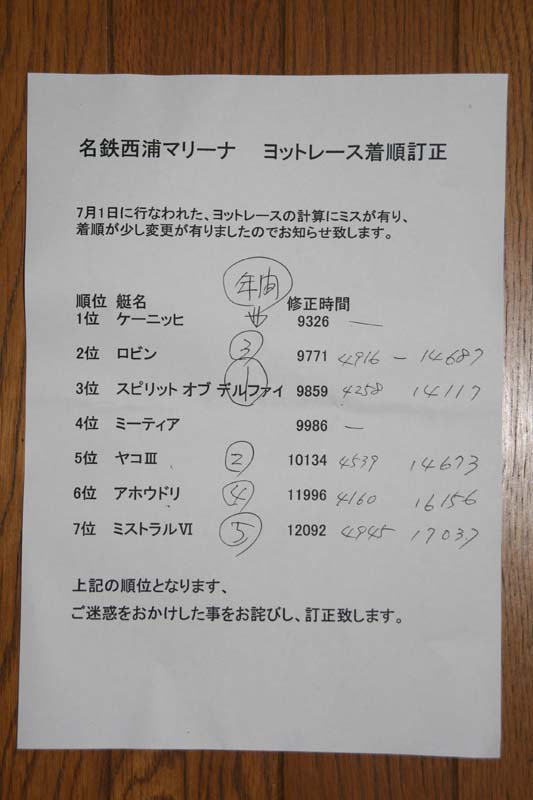 名鉄西浦マリーナ ヨットレース着順訂正
7月1日に行なわれた、ヨットレースの計算にミスが有り、
着順が少し変更が有りましたのでお知らせ致します。
年間
順位 艇名 修正時間
1位 ケーニッヒ 9326 —
2位 ロビン ③ 9771 4916 — 14687
3位 スピリット オブ デルファイ ① 9859 4258 14117
4位 ミーティア 9986 —
5位 ヤコⅢ ② 10134 4539 14673
6位 アホウドリ ④ 11996 4160 16156
7位 ミストラルⅥ ⑤ 12092 4945 17037
上記の順位となります、
ご迷惑をおかけした事をお詫びし、訂正致します。